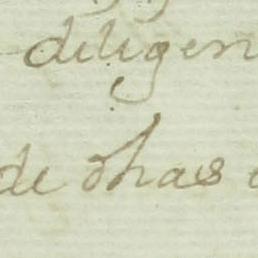 diligen
de dhas